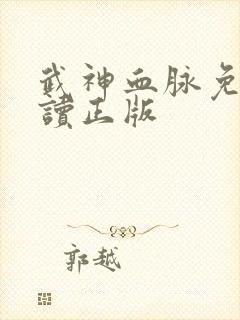 武神血脉免
讀正版
郭越